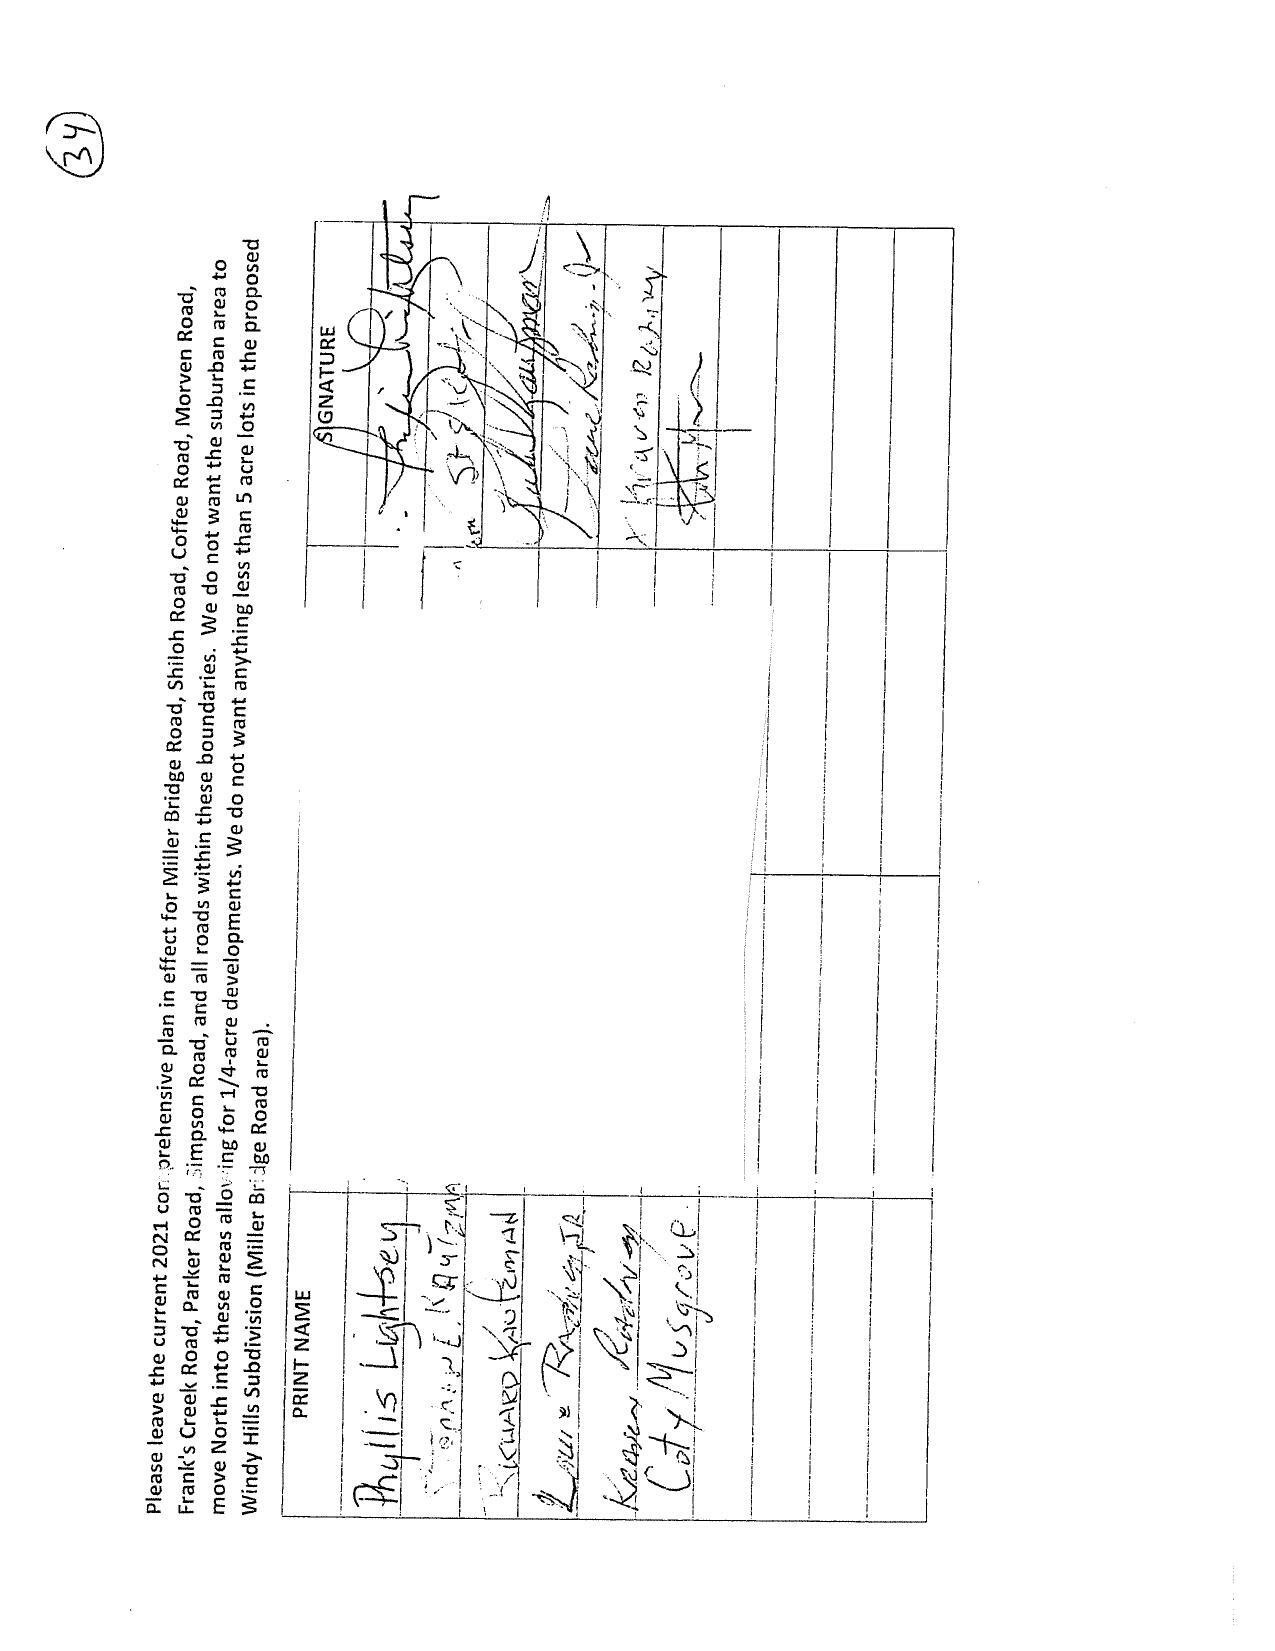 34
Please leave the current 2021 comprehensive plan in effect for Miller Bridge Road, Shiloh Road, Coffee Road, Morven Road,
Frank's Creek Road, Parker Road, Simpson Road, and all roads within these boundaries. We do not want the suburban area to
move North into these areas allowing for 1/4-acre developments. We do not want anything less than 5 acre lots in the proposed
Windy Hills Subdivision (Miller Bridge Road area).
PRINT NAME SIGNATURE
Phyllis Lightsey
E. KAUTZMA
RICHARD KAUTZMAN
Louie JR
Coty Musgrove